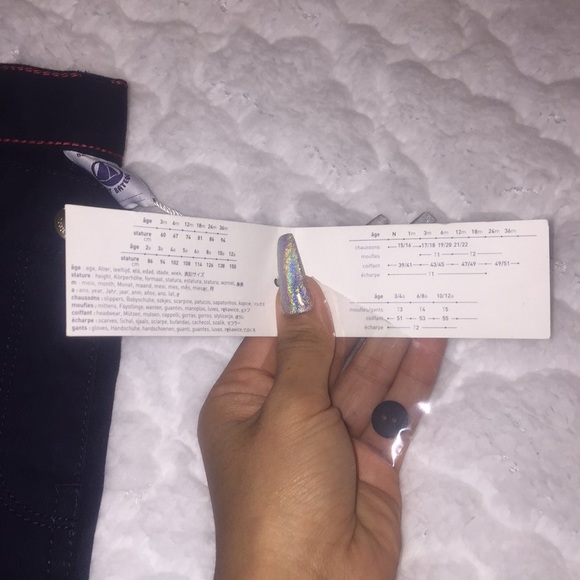 âge 3m 6m 12m 18m 24m 36m
stature 60 67 74 81 86 94
cm
âge 2a 3a 4a 5a 6a 8a 10a 12a
stature 86 94 102 108 114 126 138 150
cm
âge: age, Alter, leeftijd, età, edad, idade, wiek,
stature: height, Körperhöhe,
m: mois, month, Monat, maand, mesi, mes, mês,
a: ans, year, Jahr, jaar, anni, años, ano, lat,
chaussons: slippers, Babyschuhe,
moufles: mittens, Fäustlinge, wanten,
coiffant: headwear, Mützen, mutsen, cappelli, gorras, gorros,
écharpe: scarves, Schal, sjaals, sciarpe, bufandas, cachecol, szalik,
gants: gloves, Handschuhe, handschoenen, guanti, guantes, luvas,
âge N 1m 3m 6m 12m 18m 24m 36m
chaussons 15/16 17/18 19/20 21/22
moufles 11 12
coiffant 39/41 43/45 47/49 49/51
écharpe 11
âge 3/4a 6/8a 10/12a
moufles/gants 13 14 15
coiffant 51 53 55
écharpe 12